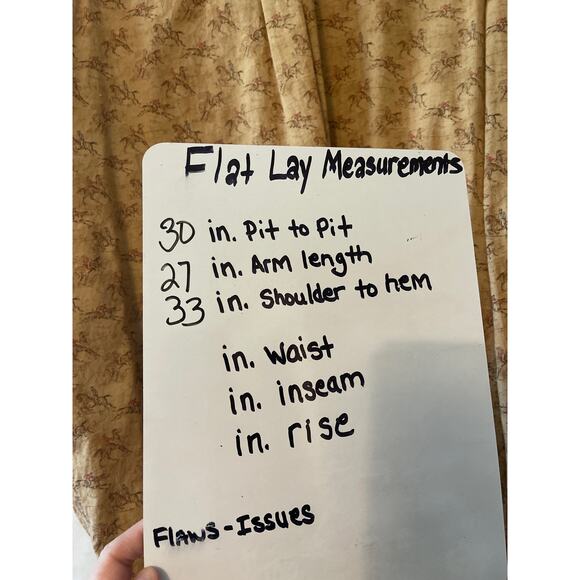 Flat Lay Measurements
30 in. Pit to Pit
27 in. Arm length
33 in. Shoulder to hem
in. Waist
in. inseam
in. rise
Flaws - Issues